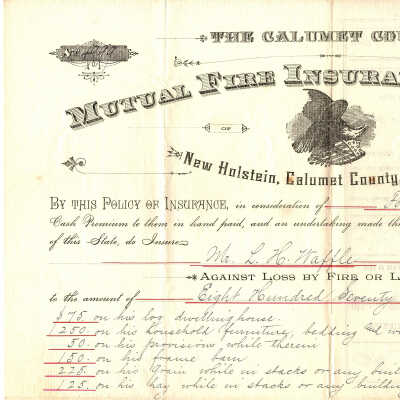 THE CALUMET CO
MUTUAL FIRE INSURA
OF
New Holstein, Calumet County,
BY THIS POLICY OF INSURANCE, in consideration of
Cash Premium to them in hand paid, and an undertaking made th
of this State, do Insure
Mr. L. H. Waffle
AGAINST LOSS BY FIRE OR L
to the amount of Eight Hundred Seventy
$75. on his log dwelling house.
250. on his household furniture, bedding & w
50. on his provisions while therein
150. on his frame barn
225. on his grain while in stacks or any buil
125. on his hay while in stacks or any building